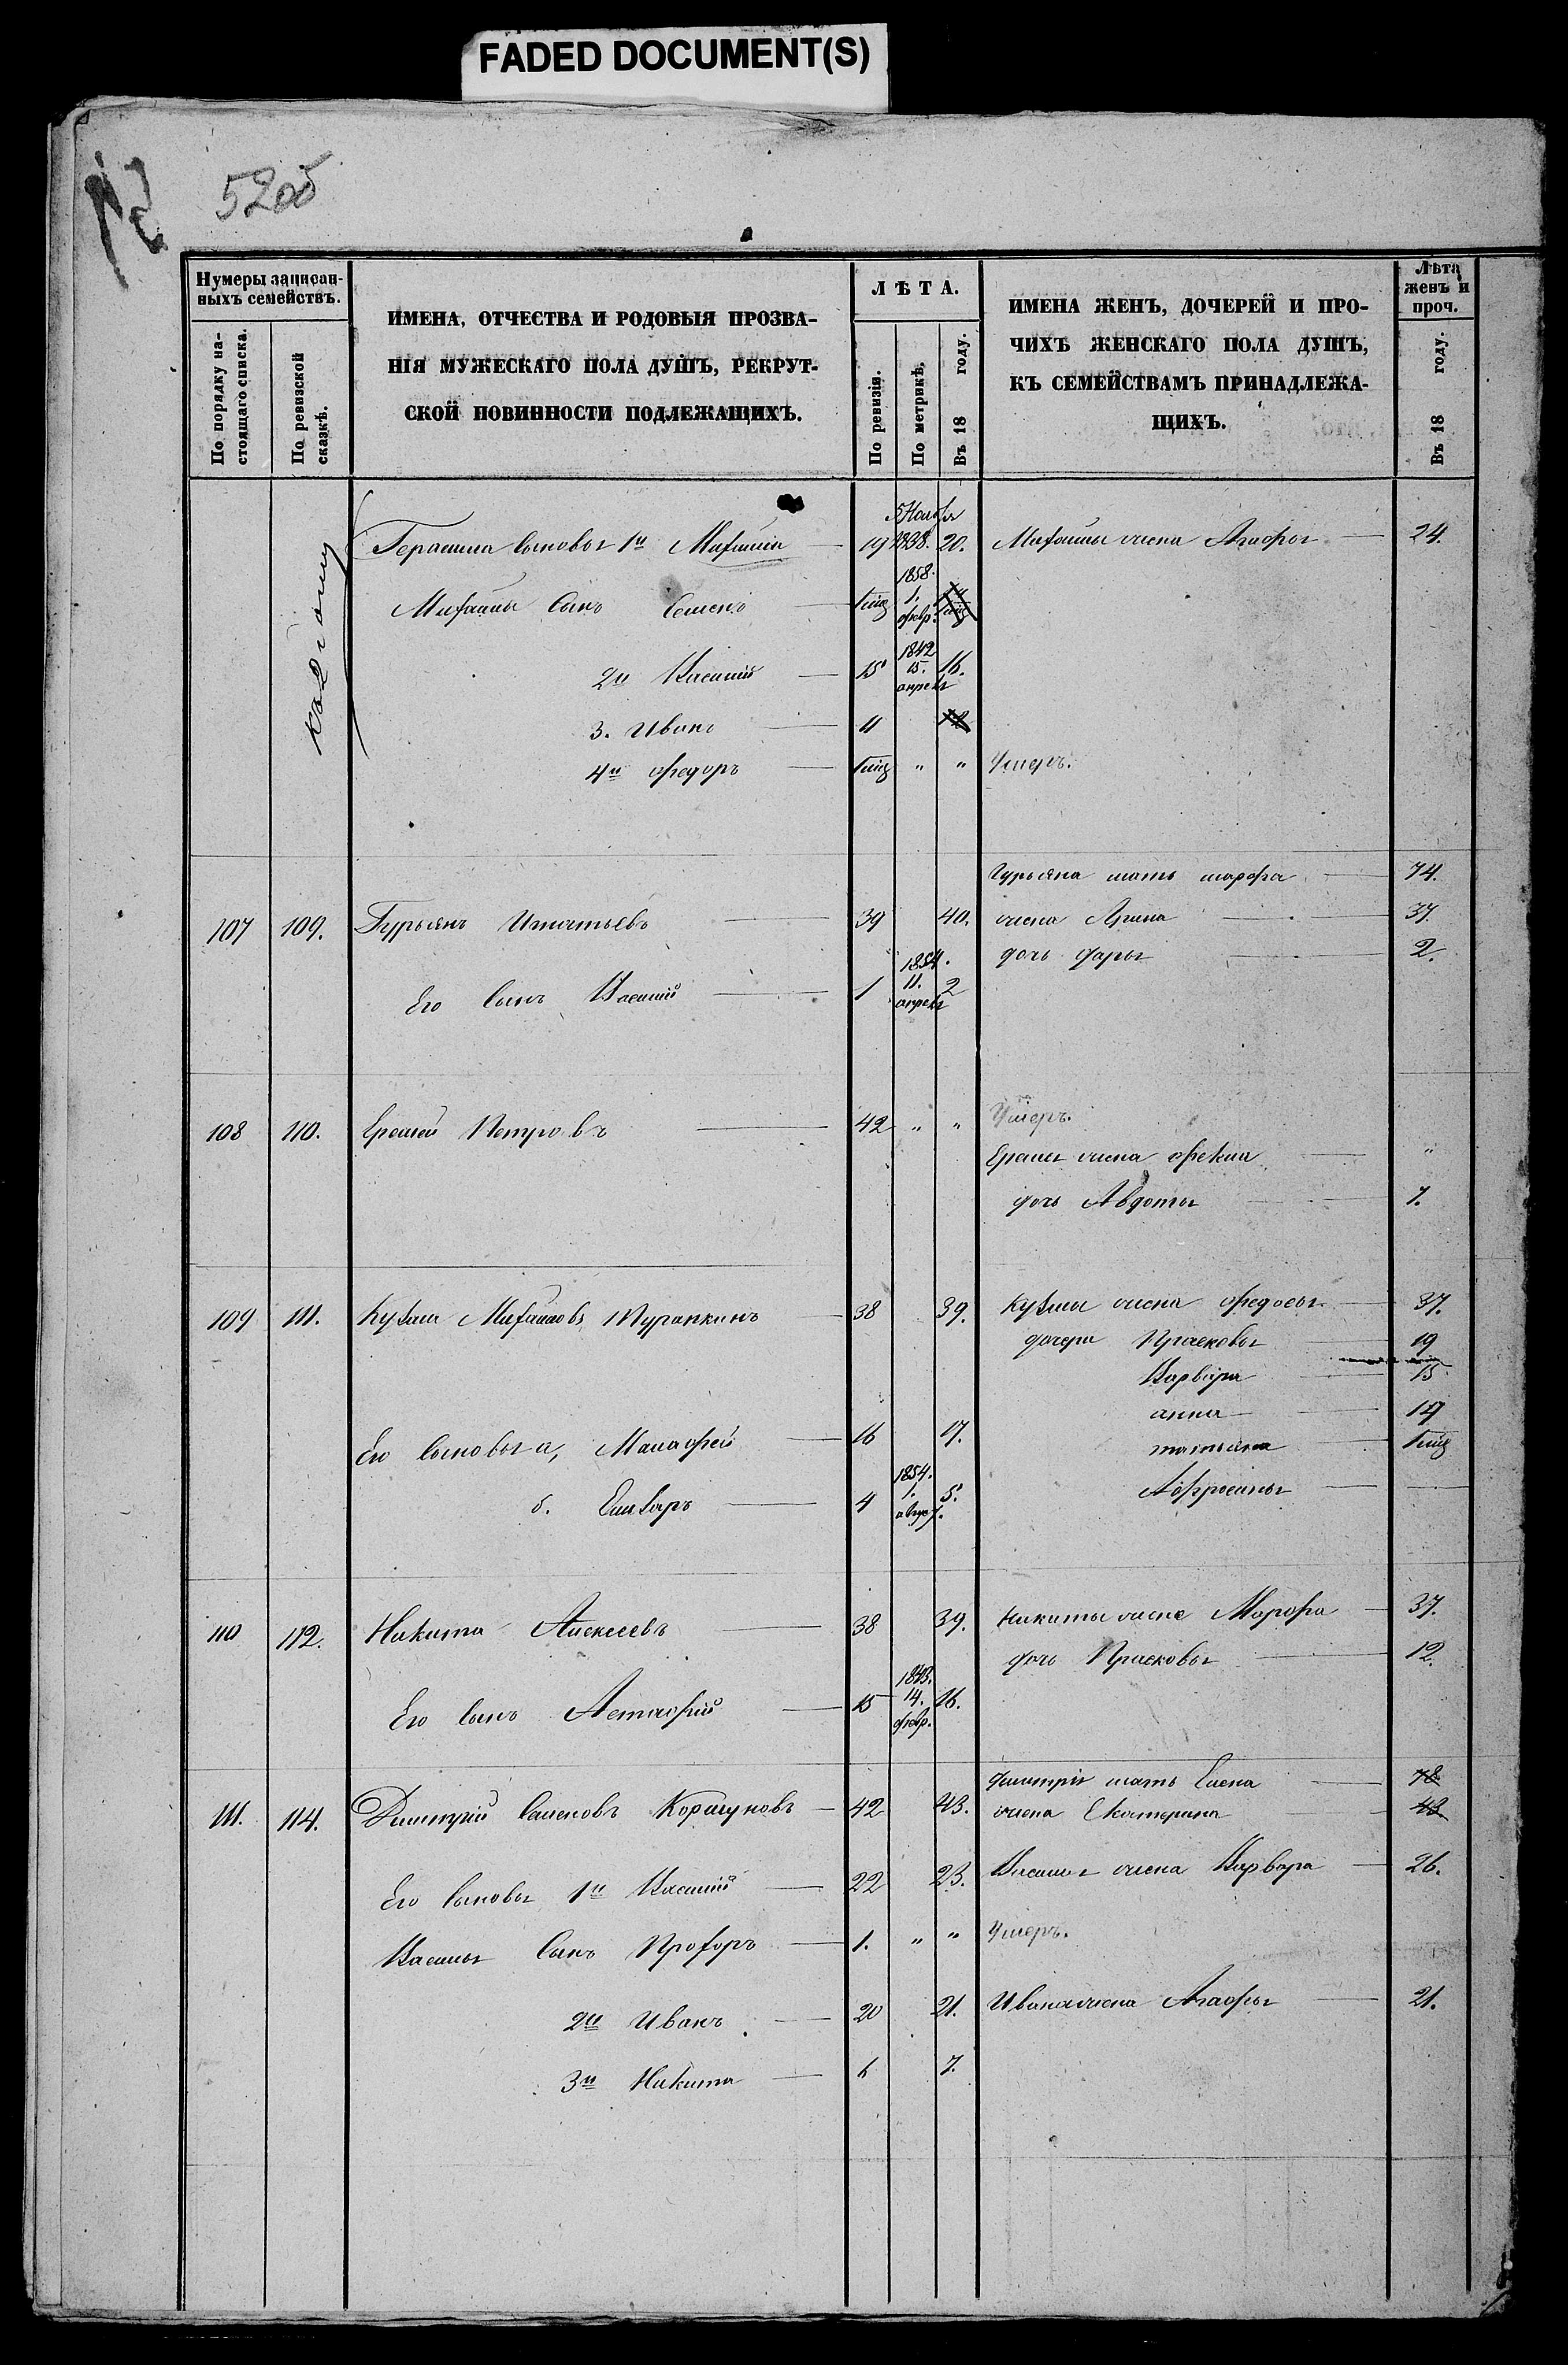 FADED DOCUMENT(S)
52об
Нумеры записан-
ныхъ семействъ.
По порядку на-
стоящаго списка.
По ревизской
сказкѣ.
ИМЕНА, ОТЧЕСТВА И РОДОВЫЯ ПРОЗВА-
НІЯ МУЖЕСКАГО ПОЛА ДУШЪ, РЕКРУТ-
СКОЙ ПОВИННОСТИ ПОДЛЕЖАЩИХЪ.
ЛѢТА.
По ревизіи.
По метрикѣ.
Въ 18 году.
ИМЕНА ЖЕНЪ, ДОЧЕРЕЙ И ПРО-
ЧИХЪ ЖЕНСКАГО ПОЛА ДУШЪ,
КЪ СЕМЕЙСТВАМЪ ПРИНАДЛЕЖА-
ЩИХЪ.
Лѣта
женъ и
проч.
Въ 18 году.
Герасима сыновья 1й Михайла 19 5 Ноябр 1838. 20. Михайлы жена Агафья 24.
Михайлы сынъ Семенъ 1858. 1. февр.
2й Василій 15 1842 15. апреля 16.
3. Иванъ 11
4й Федоръ " " Умеръ.
Гурьяна мать марфа 74.
107 109. Гурьянъ Игнатьевъ 39 40. жена Арина 37.
дочь дарья 2.
Его сынъ Василій 1 1854. 11. апреля 2
108 110. Еремей Петровъ 42 " " Умеръ.
Еремы жена фекла "
дочь Авдотья 7.
109 111. Кузма Михайловъ Туранкинъ 38 39. Кузмы жена федосья 37.
дочери Прасковья 19
Варвара 15
анна 14
Его сыновья а, Малафей 16 17. татьяна
б. Елизаръ 4 1854. 1. август. 5. Афросинья
110 112. Никита Алексеевъ 38 39. Никиты жена Марфа 37.
дочь Прасковья 12.
Его сынъ Астафій 15 1843. 14. февр. 16.
Дмитрія мать Елена 78
111. 114. Дмитрій Семеновъ Коршуновъ 42 43. жена Екатерина 43
Его сыновья 1й Василій 22 23. Василья жена Варвара 26.
Василья сынъ Прохоръ 1. " " Умеръ.
2й Иванъ 20 21. Ивана жена Агафья 21.
3й Никита 6 7.